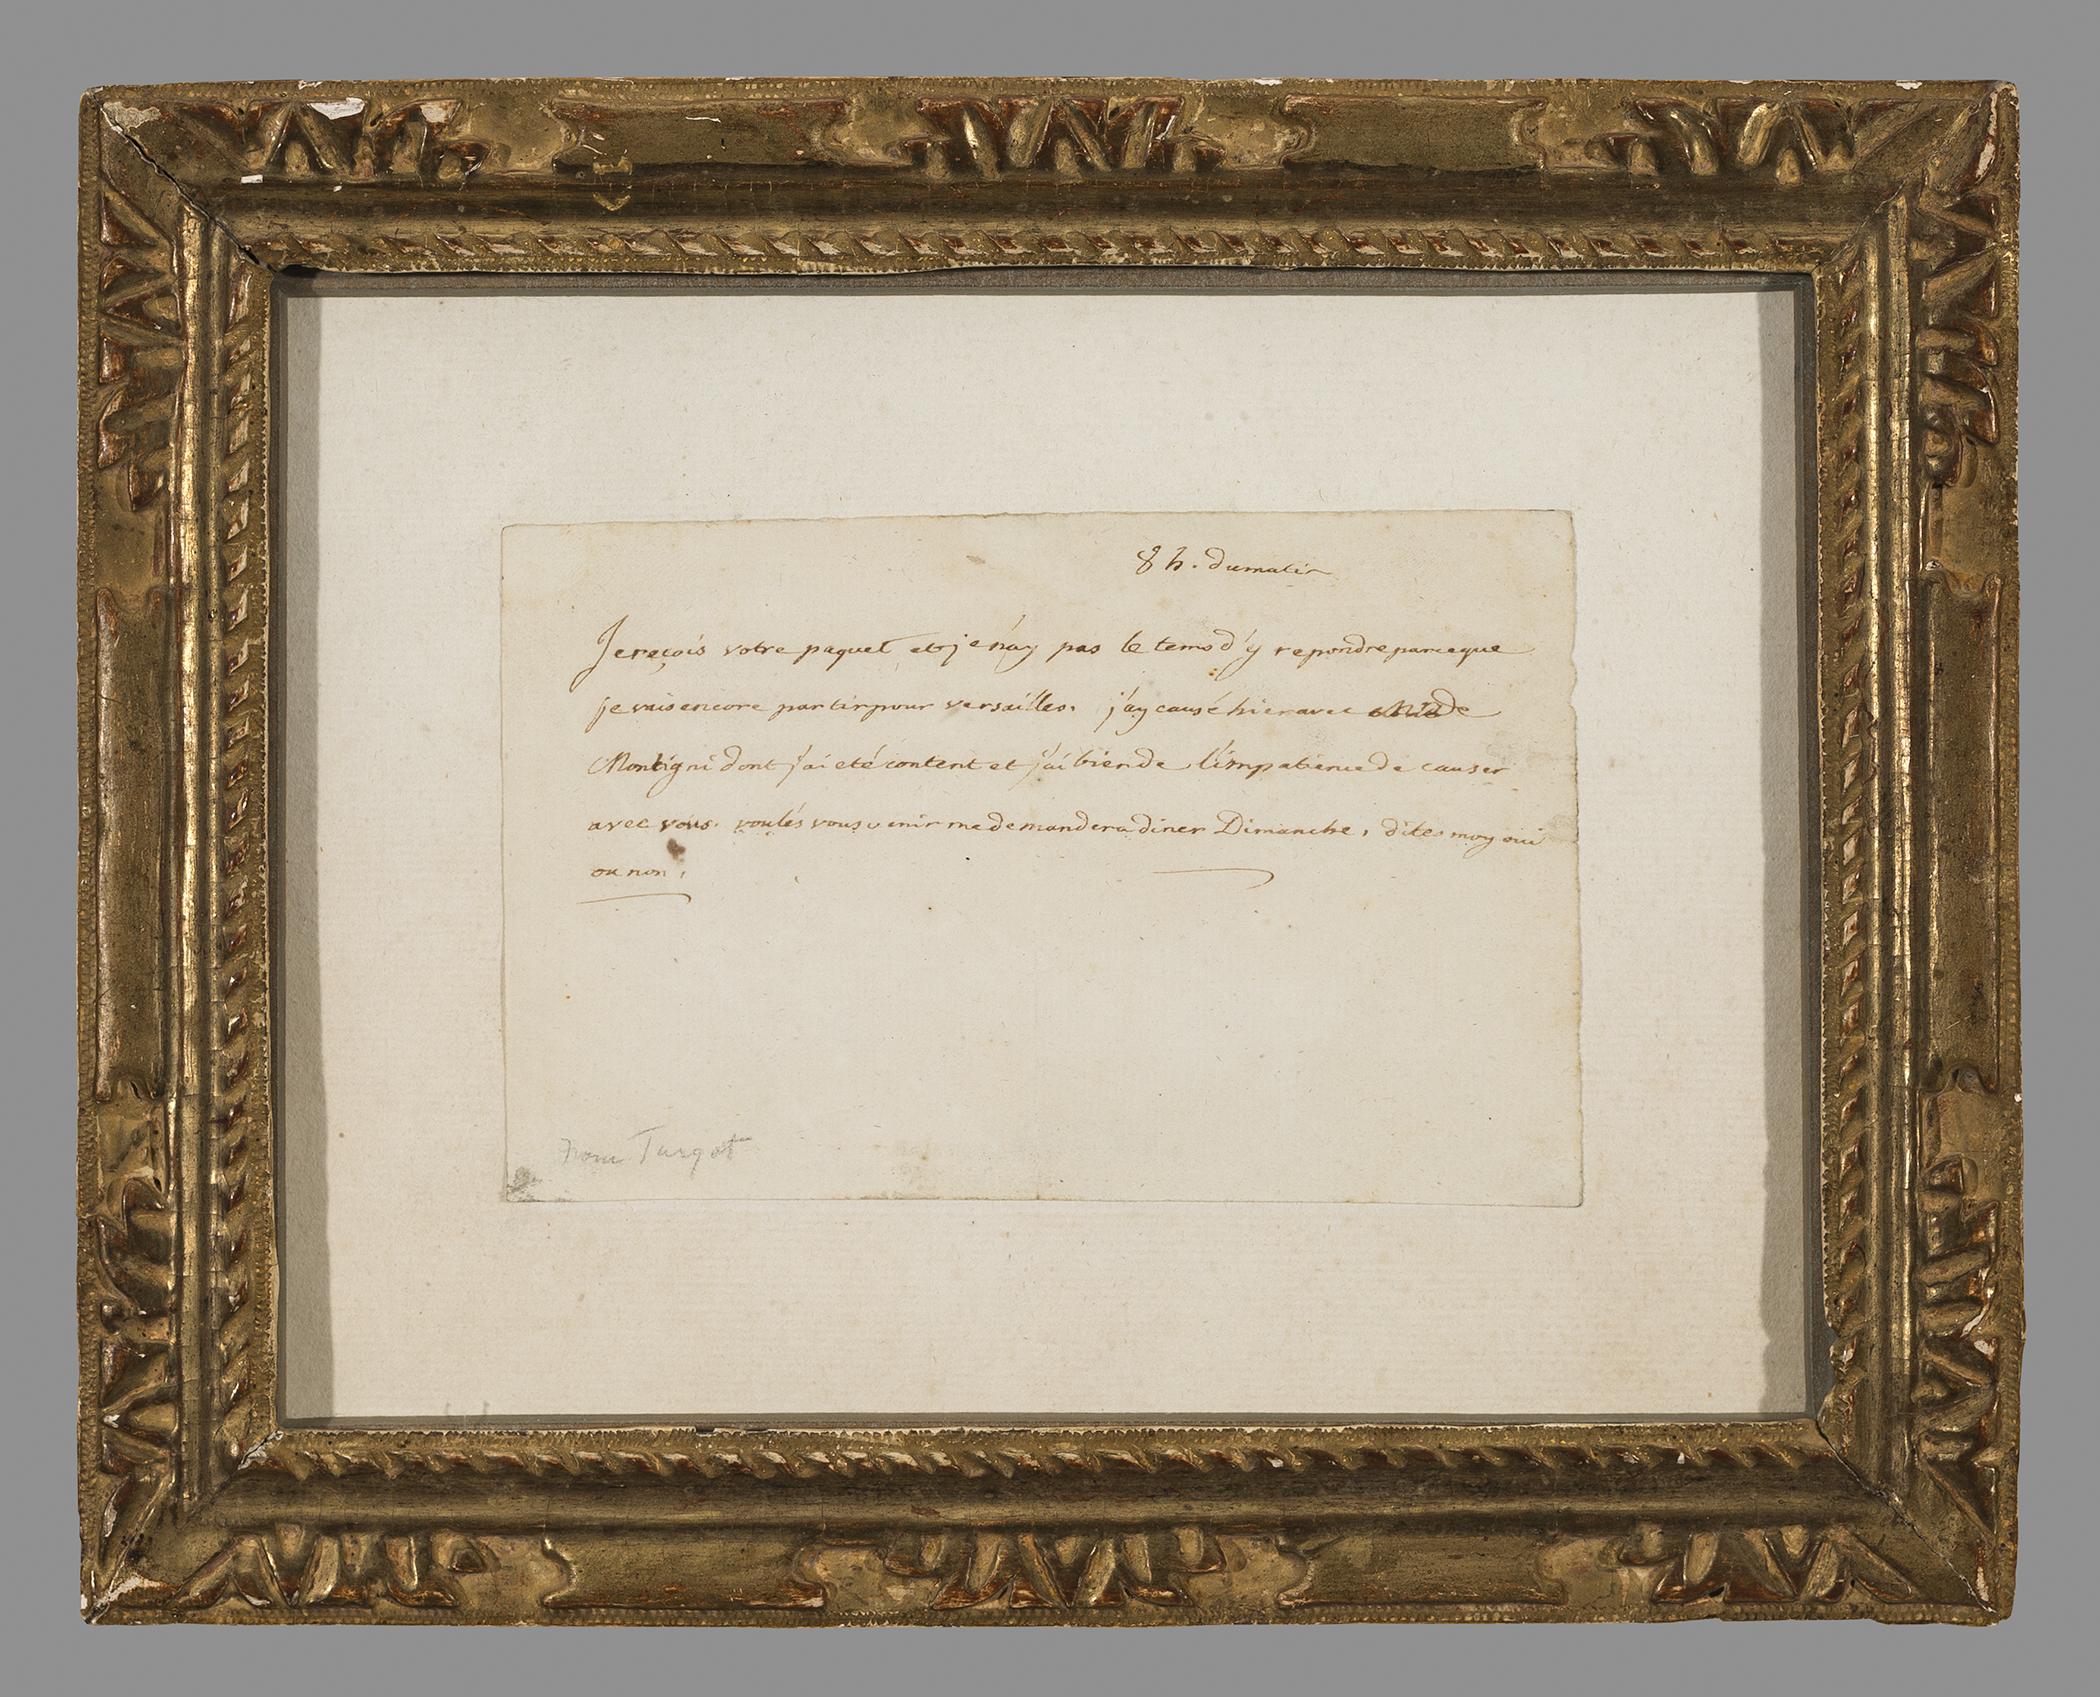 8 h. du matin
Je reçois votre paquet et je n'ay pas le tems d'y repondre parce que
je vais encore partir pour versailles. j'ay causé hier avec de
Montigni dont j'ai eté content et j'ai bien de l'impatience de causer
avec vous. voulés vous venir me demander a diner Dimanche, dites moy oui
ou non,
from Turgot